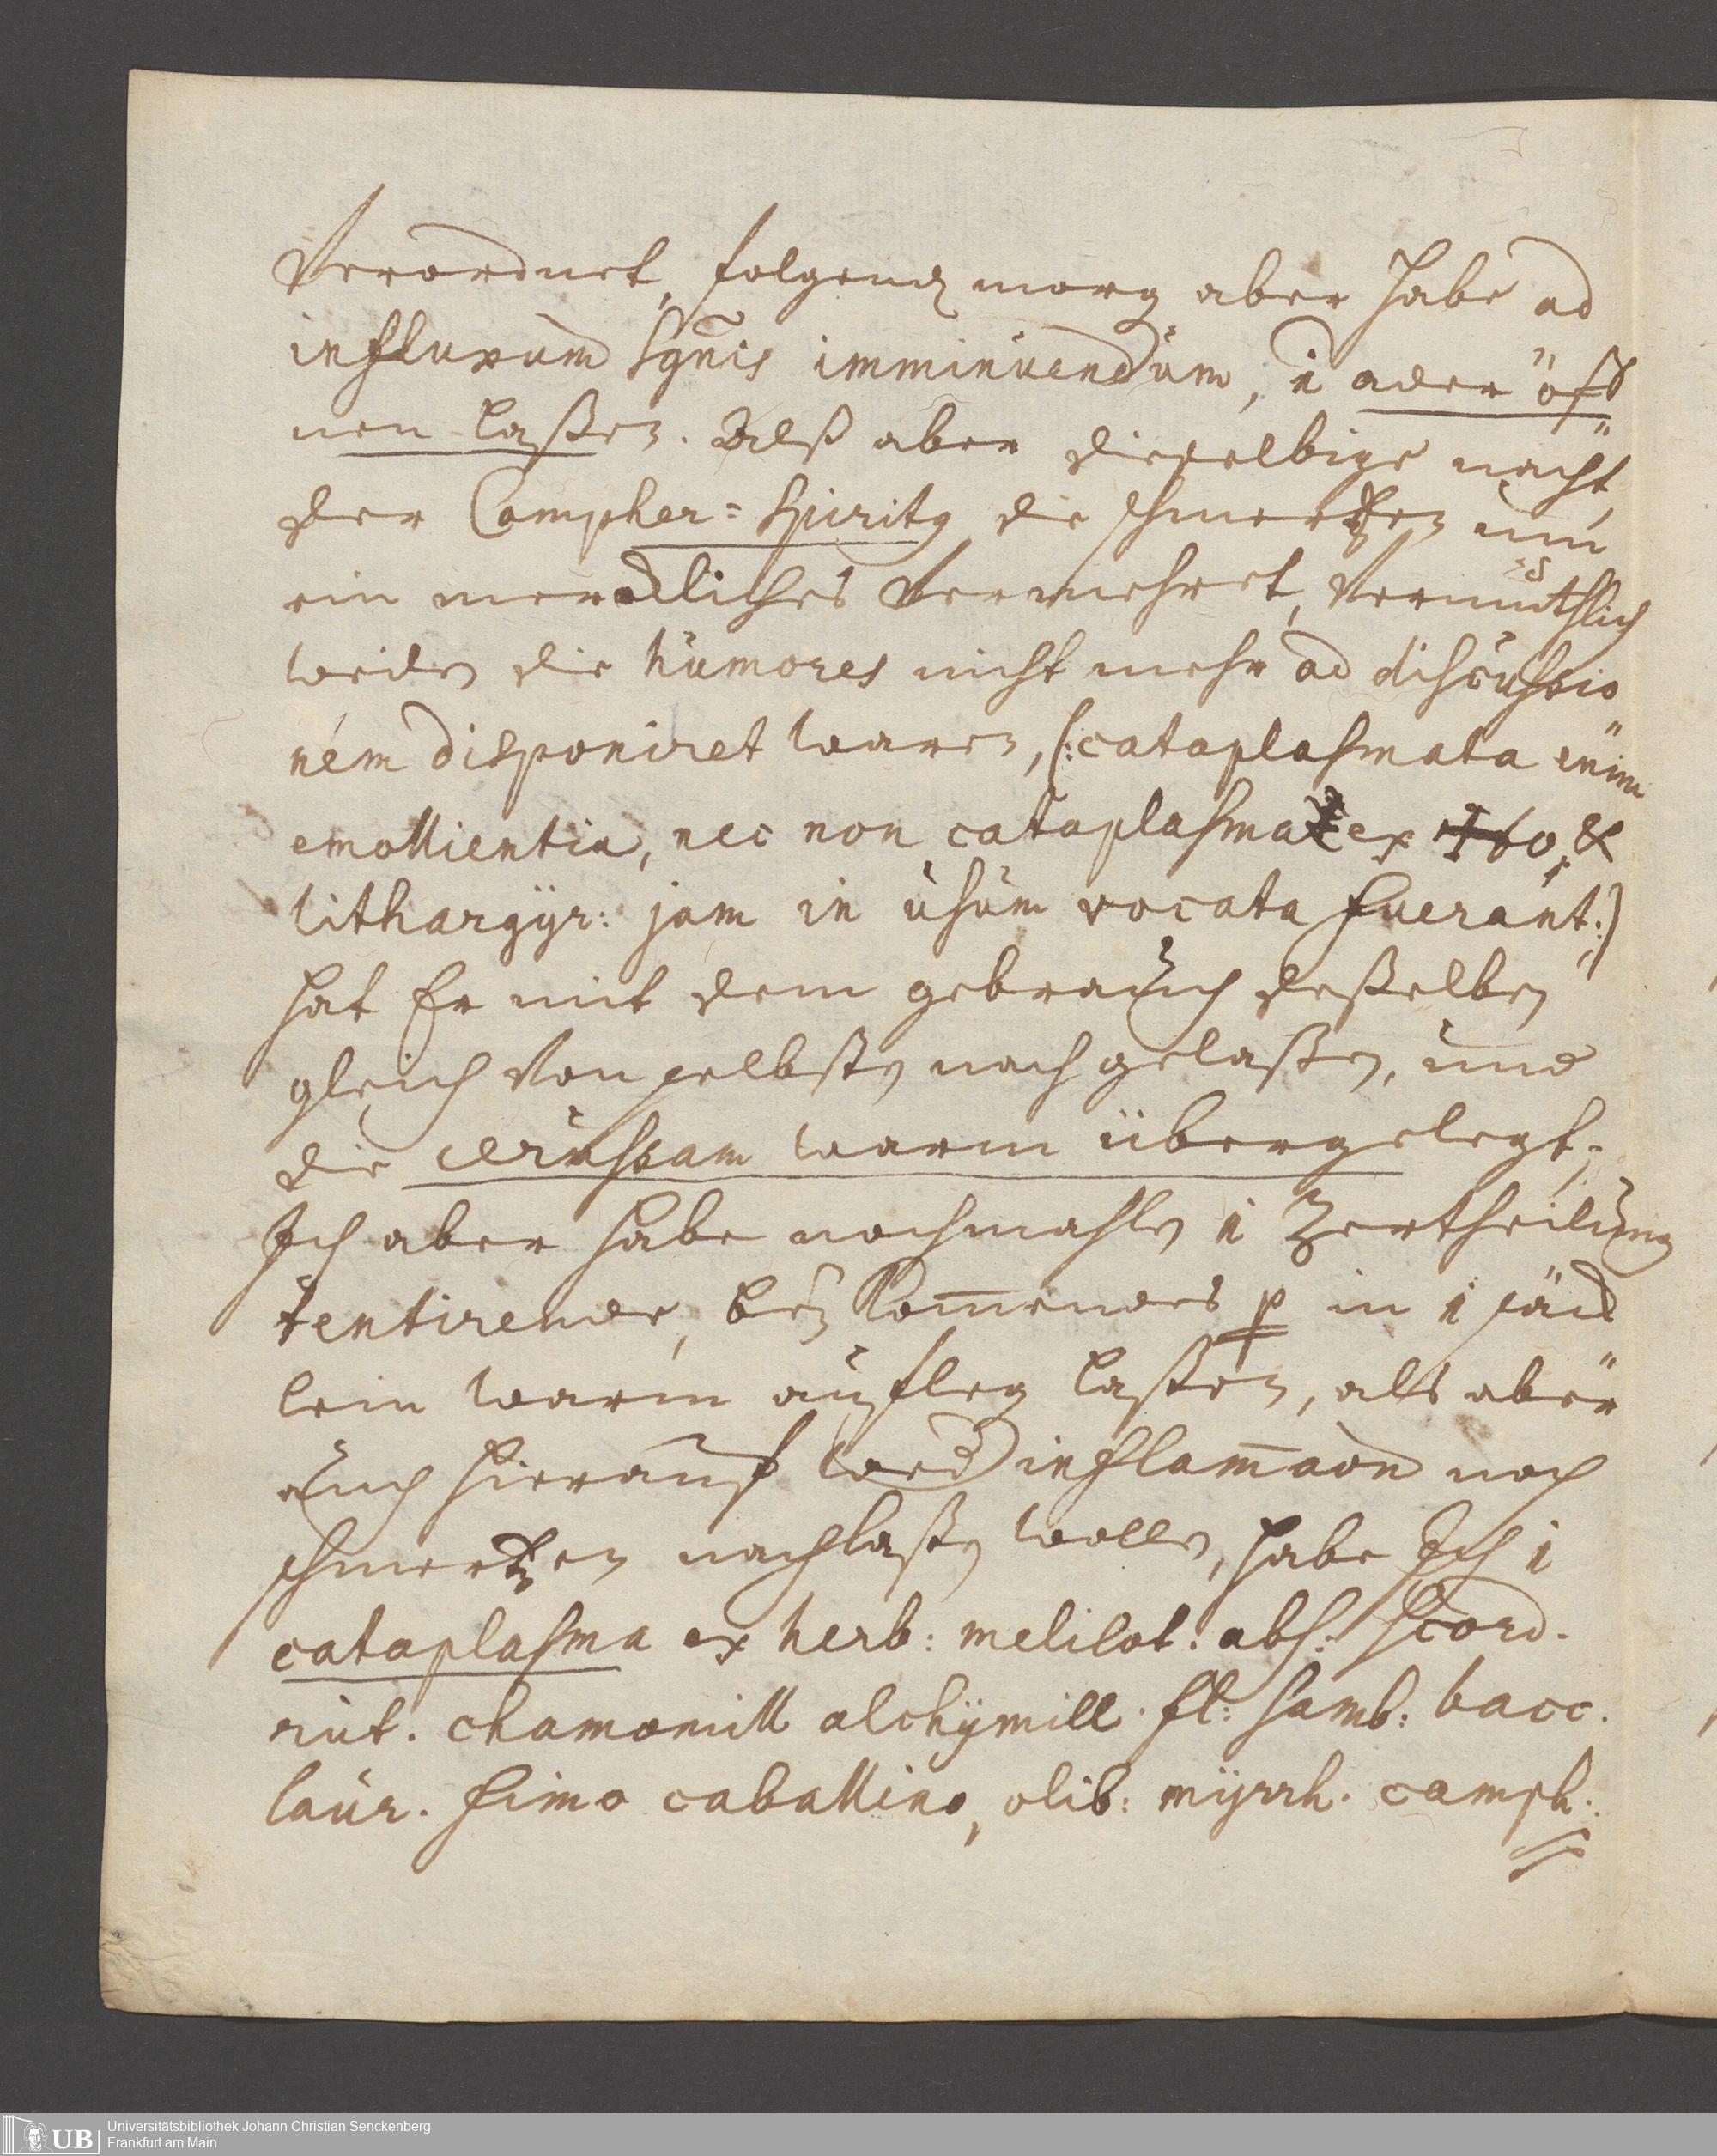 Verordnet, folgend morg aber habe ad
influxum sgnis imminuendum, i ader öff
nen laßen. Alß aber dieselbige nacht,
der Campher=Spiritq die schmertzen um
ein merckliches Vermehret, Vermuthlich
weilen die humores nicht mehr ad discussio
nem disponiret waren, (: cataplasmata enim
emollientia, nec non cataplasma ex &
lithargÿr: jam in usum vocata fuerant:)
hat Er mit dem gebrauch deßelben
gleich von selbsten nachgelaßen, und
die cerussam warm übergelegt;
Ich aber habe nochmahlen i Zertheilung
tentirende, beÿ kommendes p in i säck
lein warm aufleg laßen, als aber
auch hierauf wed inflamaon noch
schmertzen nachlaßen wollen, habe Ich i
cataplasma ex herb: melilot: abs: scord.
rut. chamomill alchÿmill. fl: samb: bacc.
laur. fimo caballino, olib: mÿrrh. camph:
UB Universitätsbibliothek Johann Christian Senckenberg
Frankfurt am Main